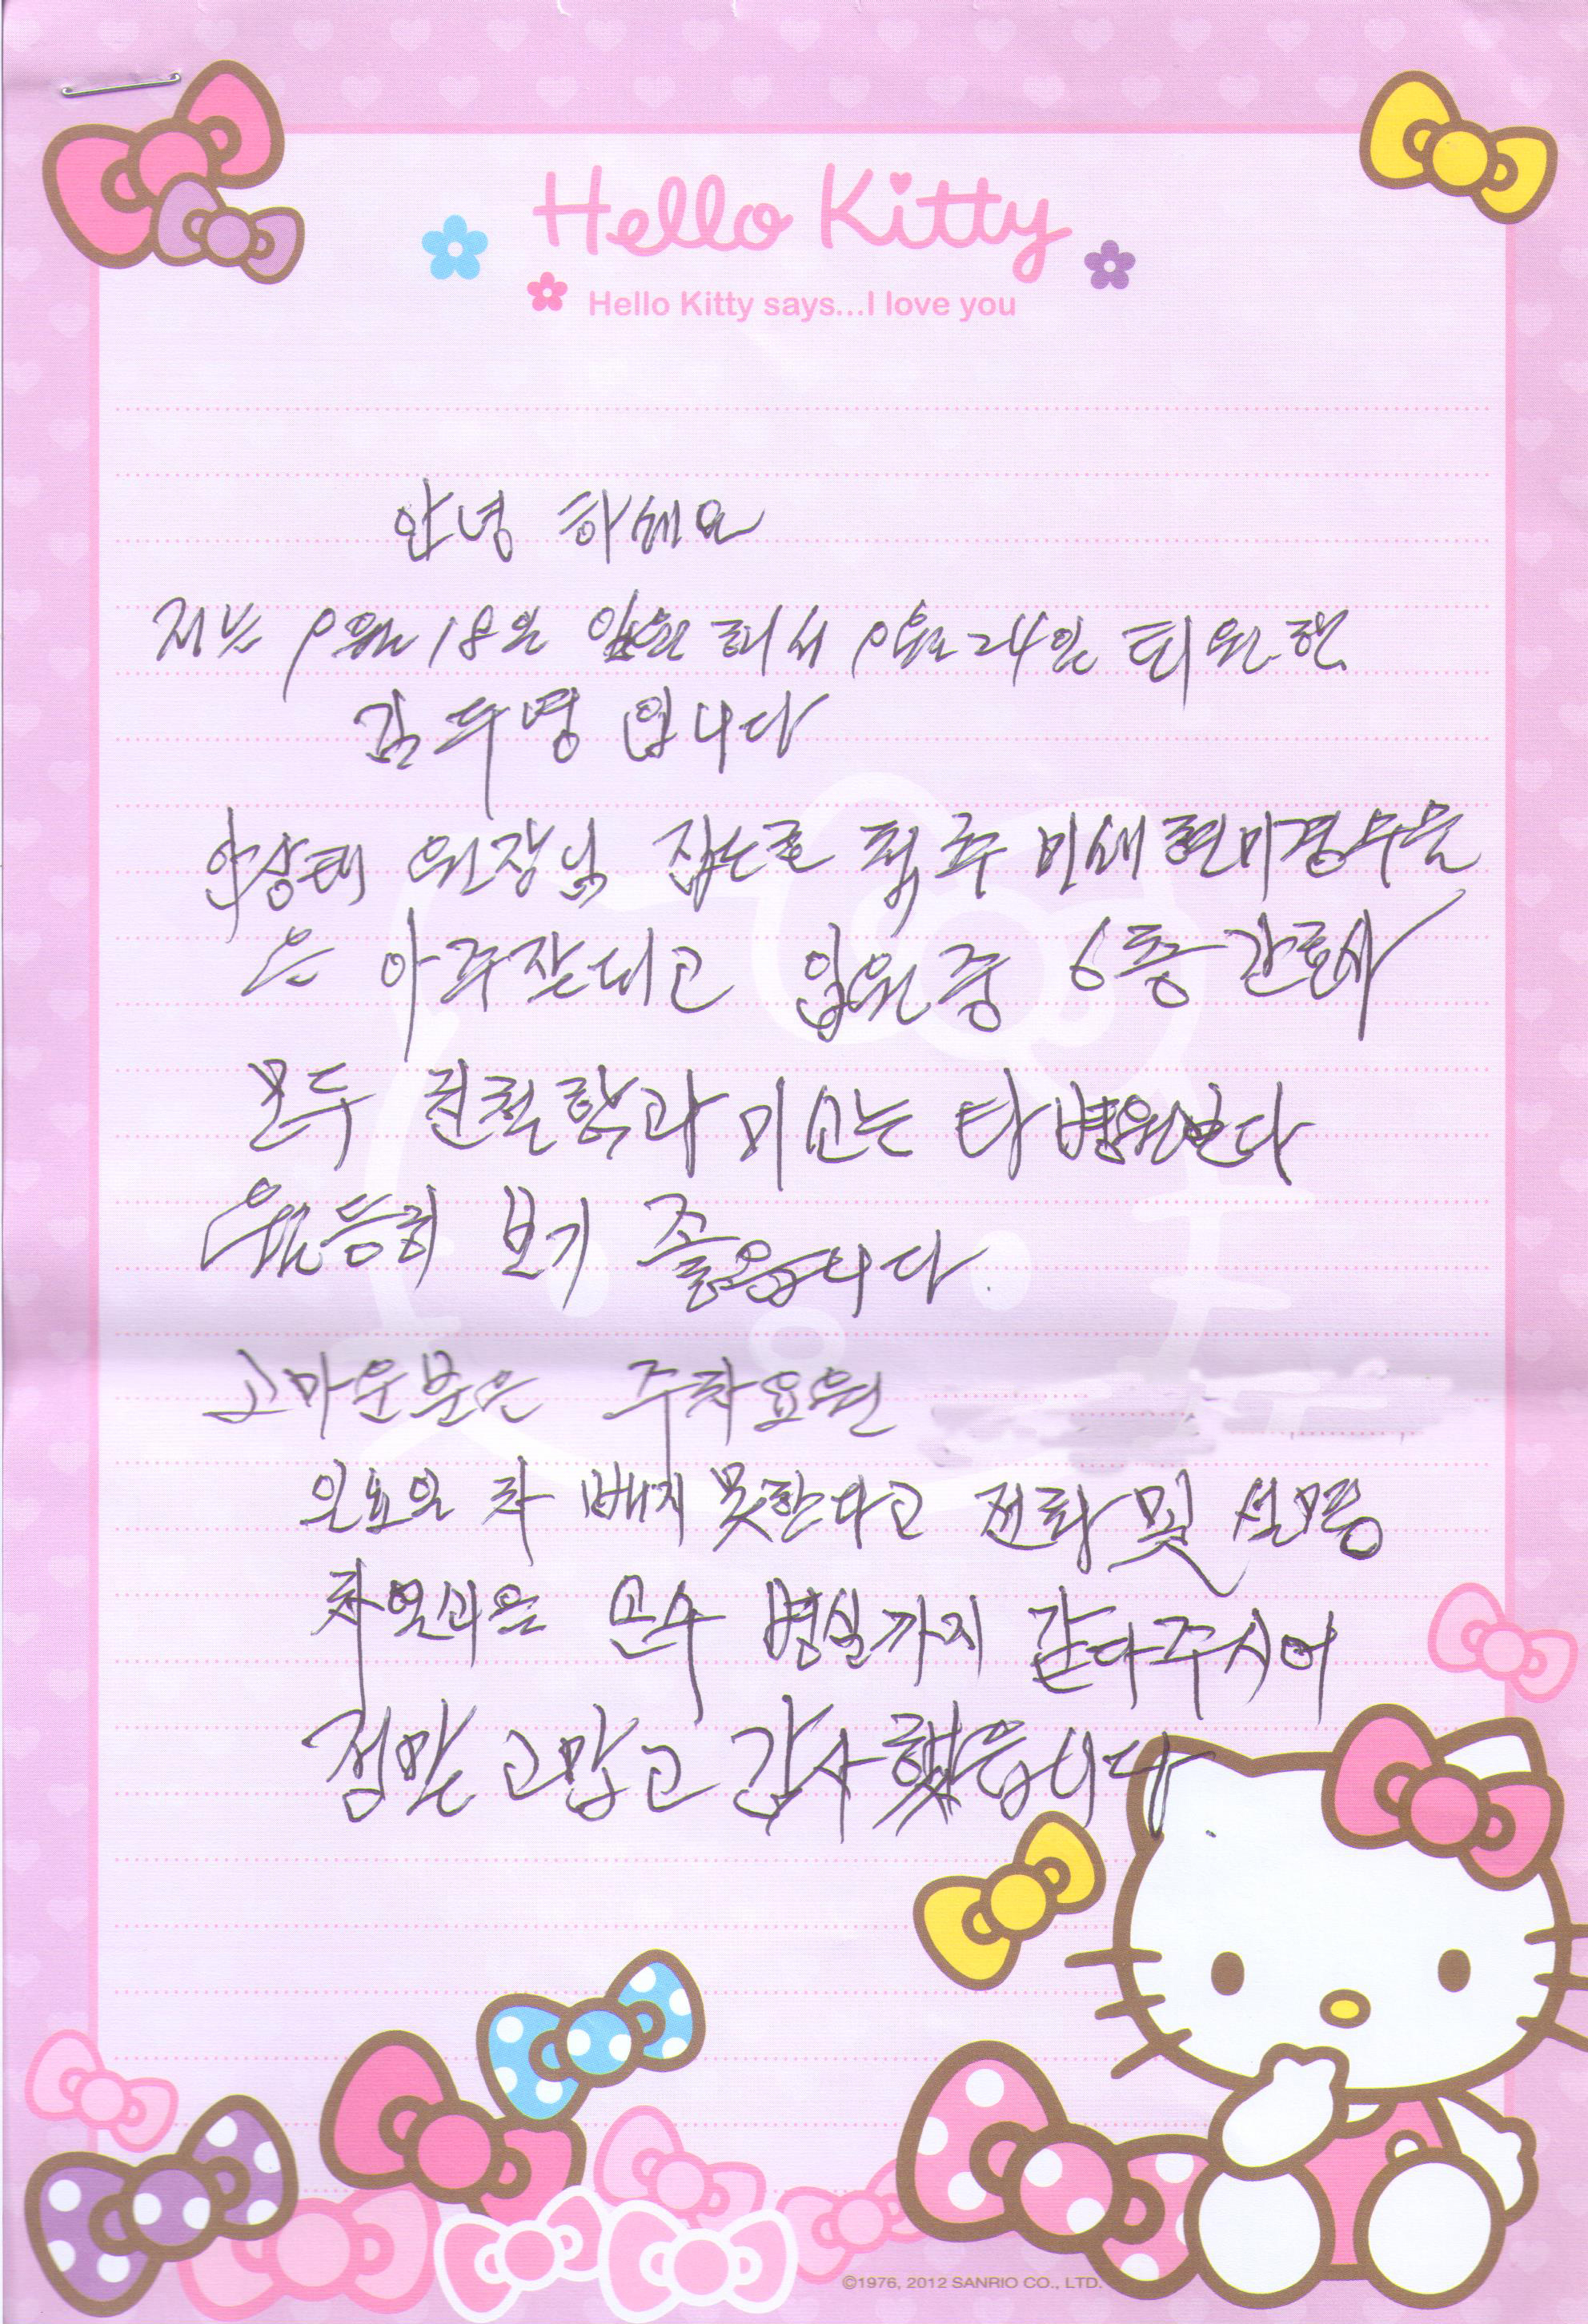 Hello Kitty
Hello Kitty says...I love you
안녕 하세요
저는 9월 18일 입원 해서 9월 24일 퇴원한
김두영 입니다
안상태 원장님 집도로 척추 미세현미경수술
은 아주잘되고 입원중 6층간호사
모두 친절함과 미소는 타병원보다
월등히 보기 좋읍니다.
고마운분은 주차요원
일요일 차 빼지 못한다고 전화 및 설명
차열쇠을 손수 병실까지 갇다주시어
정말 고맙고 감사했습니다.
©1976, 2012 SANRIO CO., LTD.